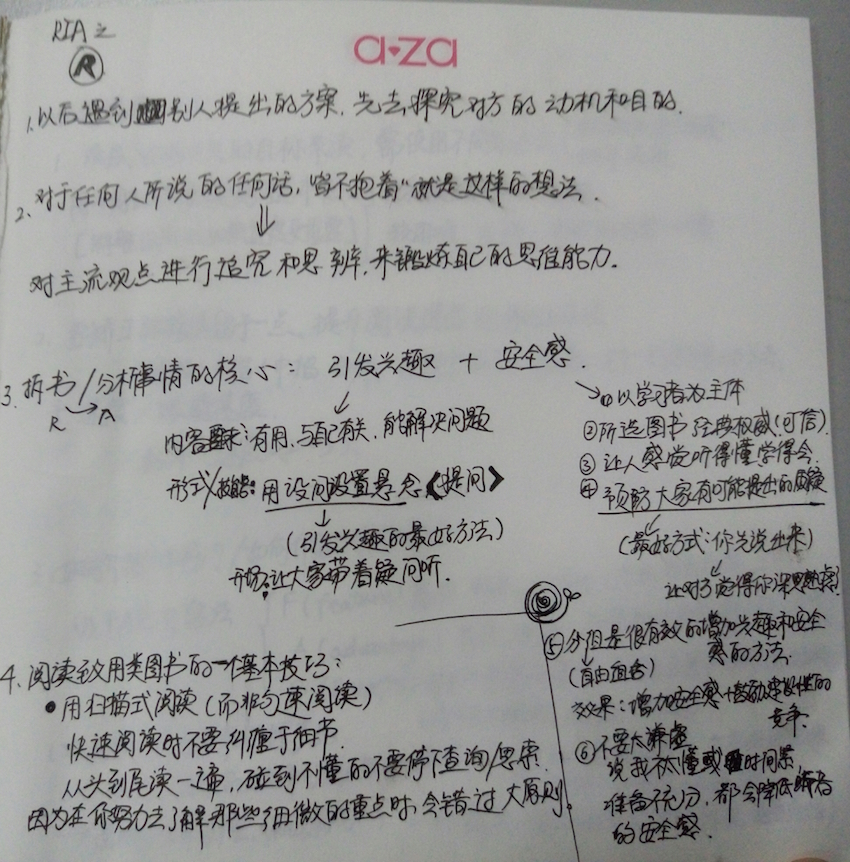 RIA之
R
a♥za
1. 以后遇到别人提出的方案, 先去探究对方的动机和目的.
2. 对于任何人所说的任何话, "皆不抱着"就是这样的想法.
对主流观点进行追究和思辨, 来锻炼自己的思维能力.
3. 拆书/分析事情的核心: 引发兴趣 + 安全感.
R → A
内容要求: 有用, 与自己有关, 能解决问题
形式/技能: 用设问设置悬念《提问》
(引发兴趣的最好方法)
开场: 让大家带着疑问听.
① 以学习者为主体
② 所选图书经典权威(可信)
③ 让人感觉听得懂学得会
④ 预防大家有可能提出的质疑
(最好方式: 你先说出来)
让对方觉得你深思熟虑
⑤ 分组是很有效的增加兴趣和安全
感的方法.
(自由组合)
效果: 增加安全感+激励建设性的
竞争.
⑥ 不要太谦虚
说我不太懂或时间紧
准备不充分, 都会降低听者
的安全感.
4. 阅读致用类图书的一个基本技巧:
• 用扫描式阅读(而非匀速阅读)
快速阅读时不要纠缠于细节.
从头到尾读一遍, 碰到不懂的不要停下查询/思索.
因为在你努力去了解那些细微的重点时, 会错过大原则.